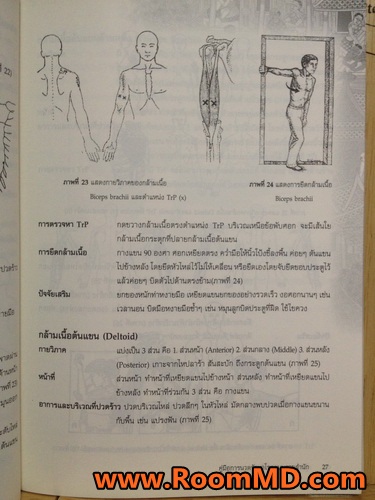 ภาพที่ 23 แสดงกายวิภาคของกล้ามเนื้อ
Biceps brachii และตำแหน่ง TrP (x)
ภาพที่ 24 แสดงการยืดกล้ามเนื้อ
Biceps brachii
การตรวจหา TrP กดขวางกล้ามเนื้อตรงตำแหน่ง TrP บริเวณเหนือข้อพับศอก จะมีเส้นใย
กล้ามเนื้อกระตุกที่ปลายกล้ามเนื้อต้นแขน
การยืดกล้ามเนื้อ กางแขน 90 องศา ศอกเหยียดตรง คว่ำมือให้นิ้วโป้งชี้ลงพื้น ค่อยๆ ดันแขน
ไปข้างหลัง โดยยึดหัวไหล่ไว้ไม่ให้เคลื่อน หรือยืดเองโดยจับยึดขอบประตูไว้
แล้วค่อยๆ บิดตัวไปด้านตรงข้าม(ภาพที่ 24)
ปัจจัยเสริม ยกของหนักท่าหงายมือ เหยียดแขนยกของอย่างรวดเร็ว งอศอกนานๆ เช่น
เวลานอน บิดมือหงายมือซ้ำๆ เช่น หมุนลูกบิดประตูที่ฝืด ใช้ไขควง
กล้ามเนื้อต้นแขน (Deltoid)
กายวิภาค แบ่งเป็น 3 ส่วน คือ 1. ส่วนหน้า (Anterior) 2. ส่วนกลาง (Middle) 3. ส่วนหลัง
(Posterior) เกาะจากไหปลาร้า สันสะบัก ถึงกระดูกต้นแขน (ภาพที่ 25)
หน้าที่ ส่วนหน้า ทำหน้าที่เหยียดแขนไปข้างหน้า ส่วนหลัง ทำหน้าที่เหยียดแขนไป
ข้างหลัง ทำหน้าที่ร่วมกัน 3 ส่วน คือ กางแขน
อาการและบริเวณที่ปวดร้าว ปวดบริเวณไหล่ ปวดลึกๆ ในหัวไหล่ มัดกลางพบปวดเมื่อกางแขนขนาน
กับพื้น เช่น แปรงฟัน (ภาพที่ 25)
27
www.RoomMD.com